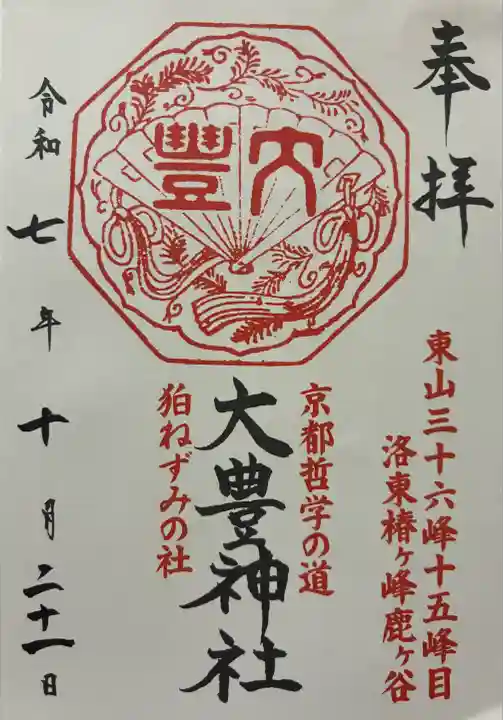 奉拝
東山三十六峰十五峰目
洛東椿ヶ峰鹿ヶ谷
大豐
京都哲学の道
大豊神社
狛ねずみの社
令和七年十月二十一日